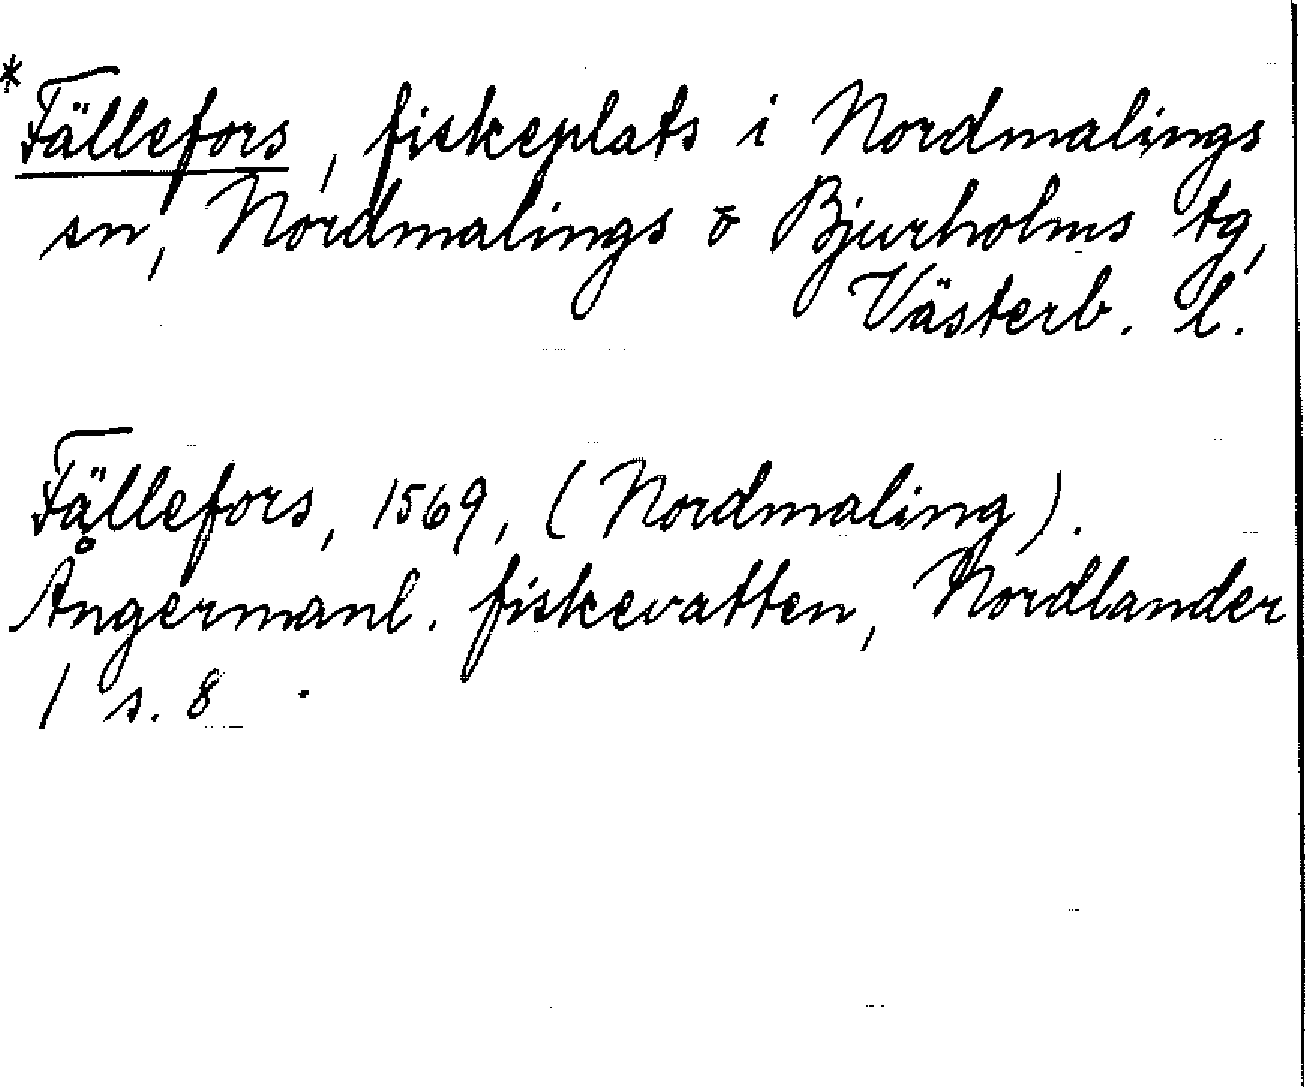 *Fällefors, fiskeplats i Nordmalings
sn, Nordmalings o Bjurholms tg,
Västerb. l.
Fällefors, 1569, (Nordmaling).
Ångermanl. fiskevatten, Nordlander
1 s. 8 .